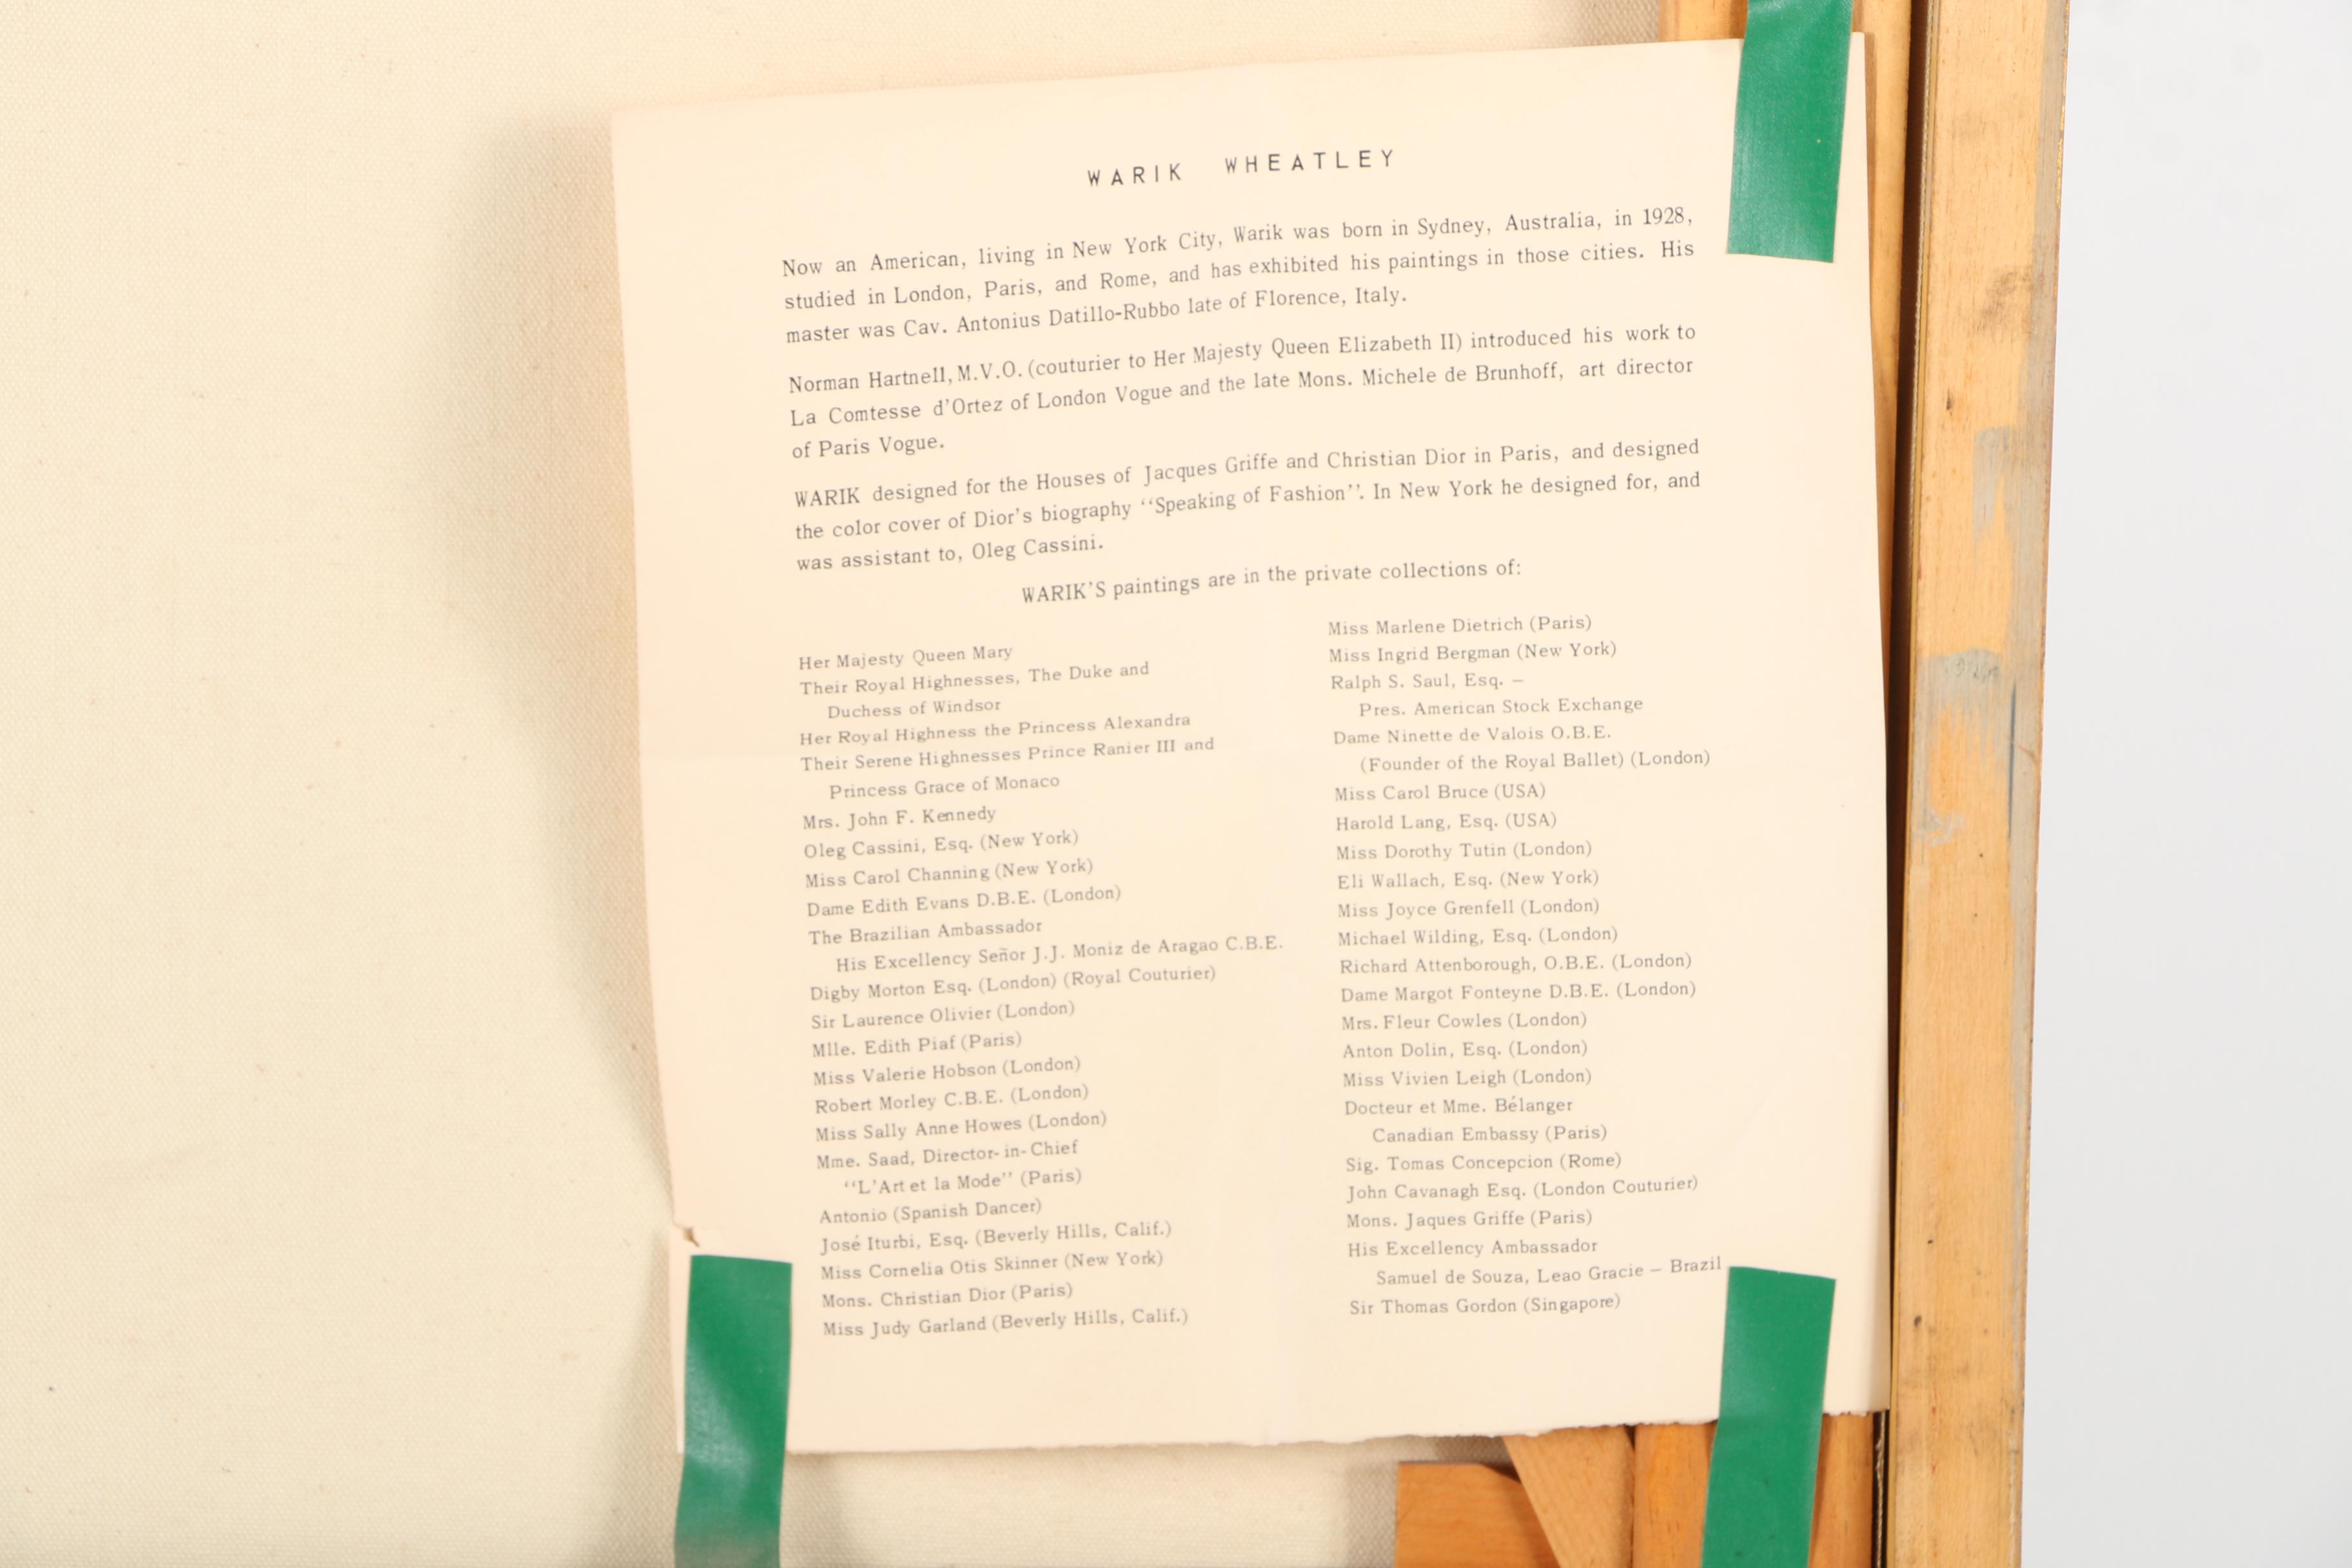 WARIK WHEATLEY
Now an American, living in New York City, Warik was born in Sydney, Australia, in 1928,
studied in London, Paris, and Rome, and has exhibited his paintings in those cities. His
master was Cav. Antonius Datillo-Rubbo late of Florence, Italy.
Norman Hartnell, M.V.O. (couturier to Her Majesty Queen Elizabeth II) introduced his work to
La Comtesse d'Ortez of London Vogue and the late Mons. Michele de Brunhoff, art director
of Paris Vogue.
WARIK designed for the Houses of Jacques Griffe and Christian Dior in Paris, and designed
the color cover of Dior's biography ''Speaking of Fashion''. In New York he designed for, and
was assistant to, Oleg Cassini.
WARIK'S paintings are in the private collections of:
Her Majesty Queen Mary
Their Royal Highnesses, The Duke and
Duchess of Windsor
Her Royal Highness the Princess Alexandra
Their Serene Highnesses Prince Ranier III and
Princess Grace of Monaco
Mrs. John F. Kennedy
Oleg Cassini, Esq. (New York)
Miss Carol Channing (New York)
Dame Edith Evans D.B.E. (London)
The Brazilian Ambassador
His Excellency Señor J.J. Moniz de Aragao C.B.E.
Digby Morton Esq. (London) (Royal Couturier)
Sir Laurence Olivier (London)
Mlle. Edith Piaf (Paris)
Miss Valerie Hobson (London)
Robert Morley C.B.E. (London)
Miss Sally Anne Howes (London)
Mme. Saad, Director-in-Chief
''L'Art et la Mode'' (Paris)
Antonio (Spanish Dancer)
José Iturbi, Esq. (Beverly Hills, Calif.)
Miss Cornelia Otis Skinner (New York)
Mons. Christian Dior (Paris)
Miss Judy Garland (Beverly Hills, Calif.)
Miss Marlene Dietrich (Paris)
Miss Ingrid Bergman (New York)
Ralph S. Saul, Esq. –
Pres. American Stock Exchange
Dame Ninette de Valois O.B.E.
(Founder of the Royal Ballet) (London)
Miss Carol Bruce (USA)
Harold Lang, Esq. (USA)
Miss Dorothy Tutin (London)
Eli Wallach, Esq. (New York)
Miss Joyce Grenfell (London)
Michael Wilding, Esq. (London)
Richard Attenborough, O.B.E. (London)
Dame Margot Fonteyne D.B.E. (London)
Mrs. Fleur Cowles (London)
Anton Dolin, Esq. (London)
Miss Vivien Leigh (London)
Docteur et Mme. Bélanger
Canadian Embassy (Paris)
Sig. Tomas Concepcion (Rome)
John Cavanagh Esq. (London Couturier)
Mons. Jaques Griffe (Paris)
His Excellency Ambassador
Samuel de Souza, Leao Gracie – Brazil
Sir Thomas Gordon (Singapore)